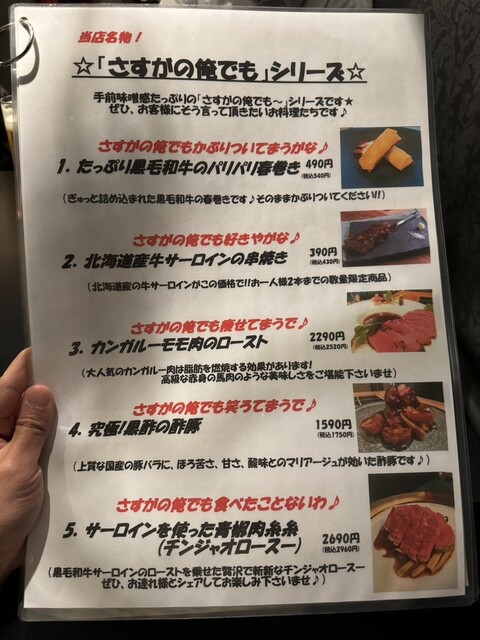 当店名物！
☆「さすがの俺でも」シリーズ☆
手前味噌感たっぷりの「さすがの俺でも〜」シリーズです★
ぜひ、お客様にそう言って頂きたいお料理たちです♪
さすがの俺でもかぶりついてまうがな♪
1. たっぷり黒毛和牛のパリパリ春巻き 490円
(税込540円)
(ぎゅっと詰め込まれた黒毛和牛の春巻きです♪そのままかぶりついてください!!)
さすがの俺でも好きやがな♪
2. 北海道産牛サーロインの串焼き 390円
(税込430円)
(北海道産の牛サーロインがこの価格で!!お一人様2本までの数量限定商品)
さすがの俺でも痩せてまうで♪
3. カンガルーモモ肉のロースト 2290円
(税込2520円)
(大人気のカンガルー肉は脂肪を燃焼する効果があります!
高級な赤身の馬肉のような美味しさをご堪能下さいませ)
さすがの俺でも笑ろてまうで♪
4. 究極!黒酢の酢豚 1590円
(税込1750円)
(上質な国産の豚バラに、ほろ苦さ、甘さ、酸味とのマリアージュが効いた酢豚です♪)
さすがの俺でも食べたことないわ♪
5. サーロインを使った青椒肉糸糸
(チンジャオロースー) 2690円
(税込2960円)
(黒毛和牛サーロインのローストを乗せた贅沢で斬新なチンジャオロースー
ぜひ、お連れ様とシェアしてお楽しみ下さいませ♪)